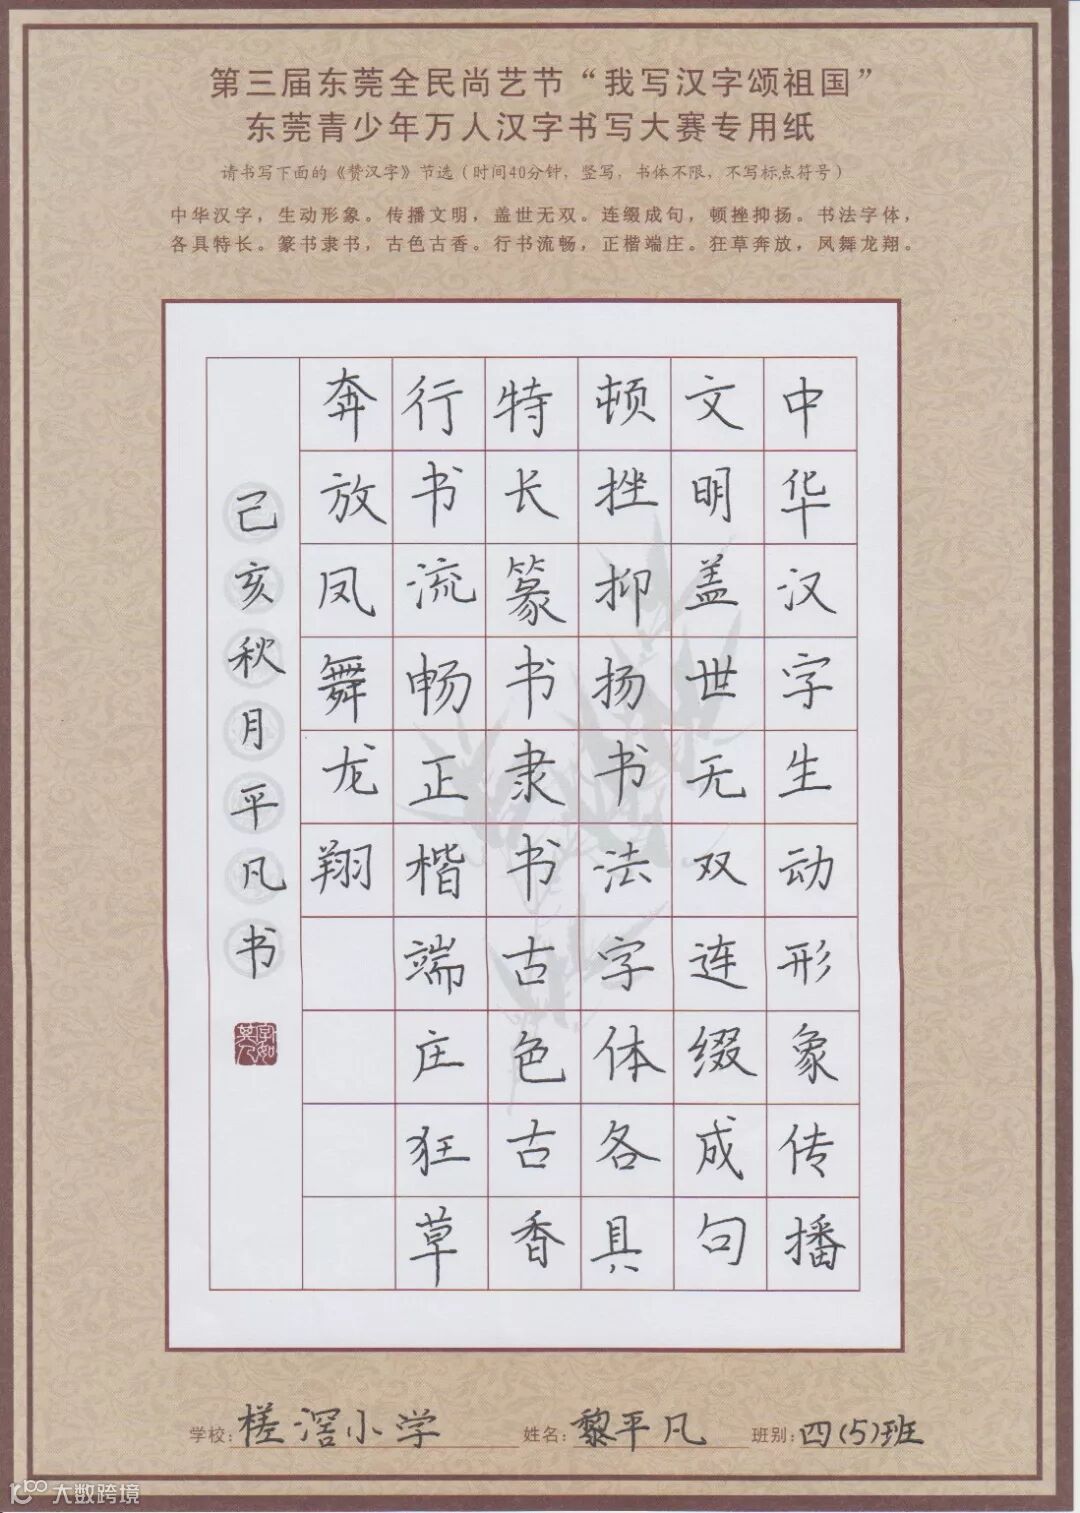 第三届东莞全民尚艺节“我写汉字颂祖国”
东莞青少年万人汉字书写大赛专用纸
请书写下面的《赞汉字》节选（时间40分钟，竖写，书体不限，不写标点符号）
中华汉字，生动形象。传播文明，盖世无双。连缀成句，顿挫抑扬。书法字体，
各具特长。篆书隶书，古色古香。行书流畅，正楷端庄。狂草奔放，凤舞龙翔。
中华汉字生动形象传播
文明盖世无双连缀成句
顿挫抑扬书法字体各具
特长篆书隶书古色古香
行书流畅正楷端庄狂草
奔放凤舞龙翔
己亥秋月平凡书
字如其人
学校：槎滘小学 姓名：黎平凡 班别：四（5）班
大数跨境